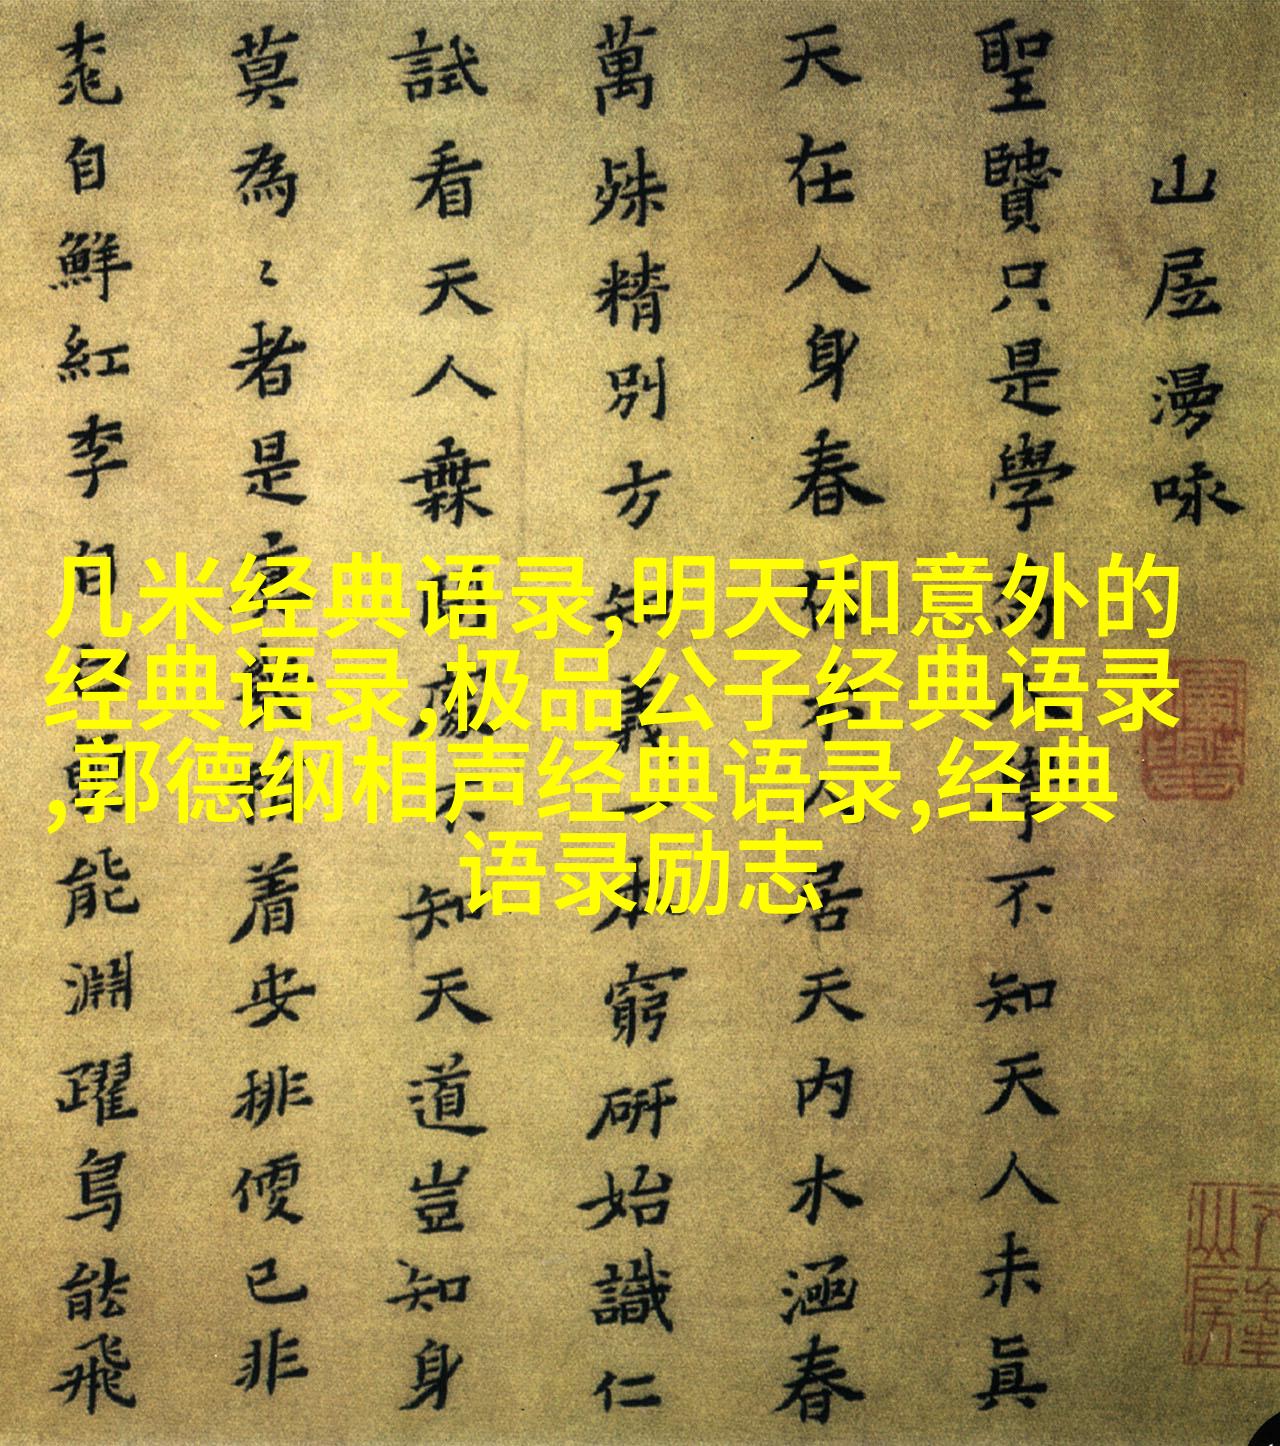 山居漫咏
聖贒只是學為人學不知天人未眞
天在人身春木人居天内水涵春
萬殊精別方知義一本窮研始識仁
試看天人橆間處不知天道豈知身
莫為〻者是着安排便已非
桃自鮮紅李自能淵躍鳥能飛
几米经典语录,明天和意外的
经典语录,极品公子经典语录
,郭德纲相声经典语录,经典
语录励志